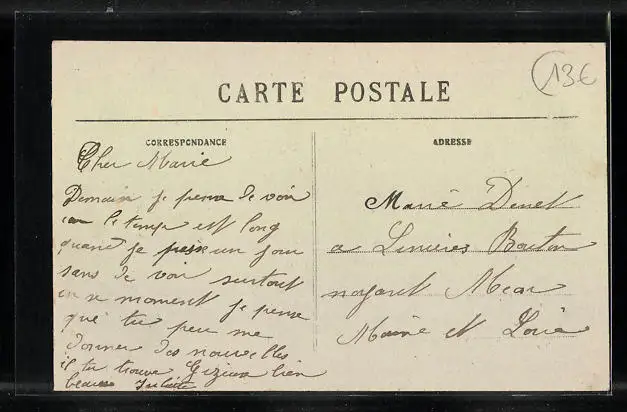 13€
CARTE POSTALE
CORRESPONDANCE
Cher Marie
Demain je pense de voir
car le temps est long
quand je un jour
sans de voir surtout
en ce moment je pense
que tu peu me
donner des nouvelles
il tu trouve Gizeux bien
beau Juliette
ADRESSE
Marie Denet
a Linières Bouton
Mear
Maine et Loire